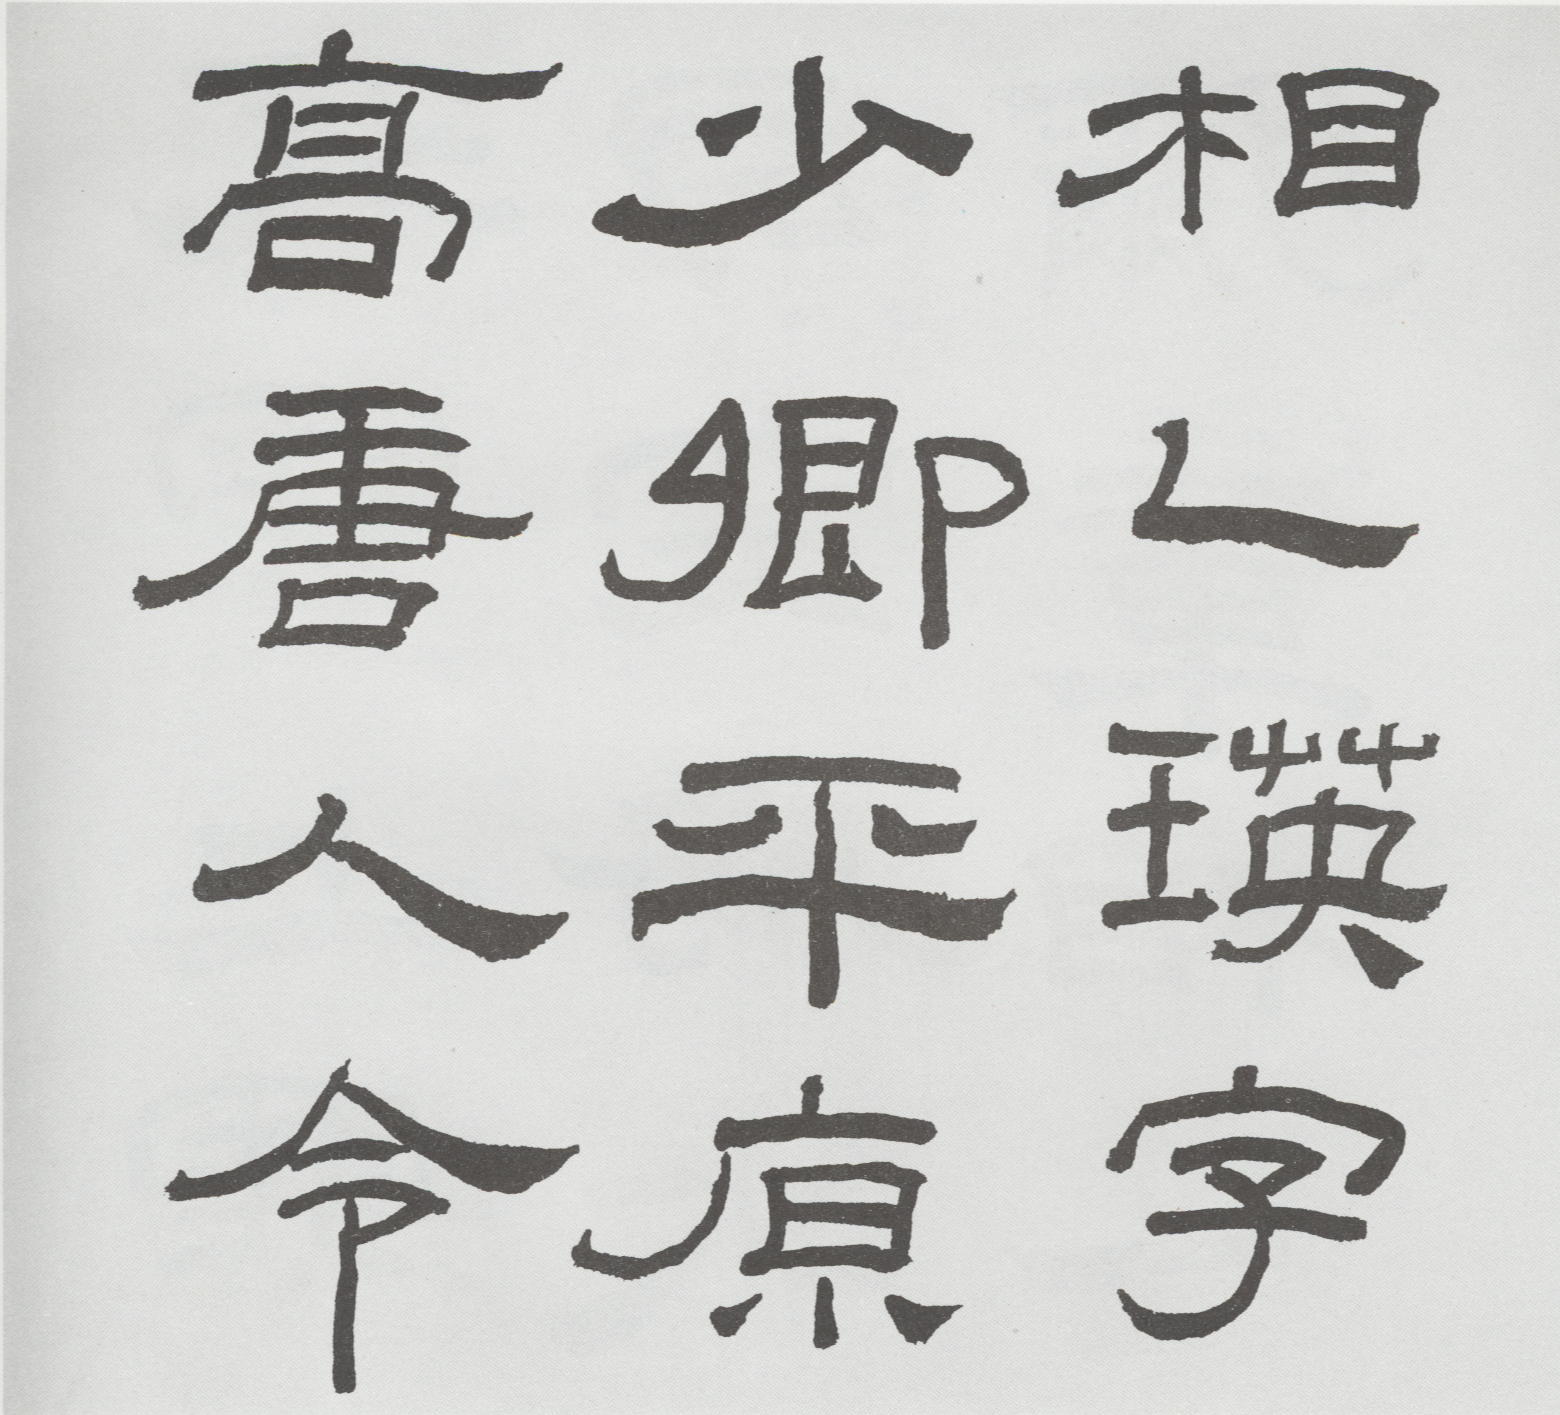 相乙瑛字
少卿平原
髙唐人令